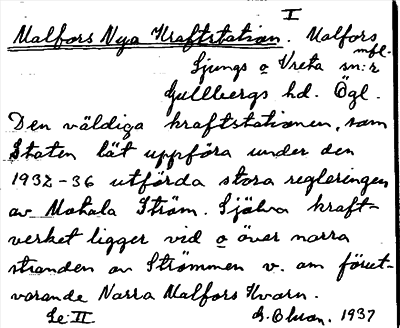 I
Malfors Nya Kraftstation. Malfors
mfl.
Ljungs o Vreta sn:r
Gullbergs hd. Ögl.
Den väldiga kraftstationen, som
Staten lät uppföra under den
1932-36 utförda stora regleringen
av Motala Ström. Själva kraft-
verket ligger vid o över norra
stranden av Strömmen v. om förut-
varande Norra Malfors Kvarn.
Se II. G. Olsson. 1937